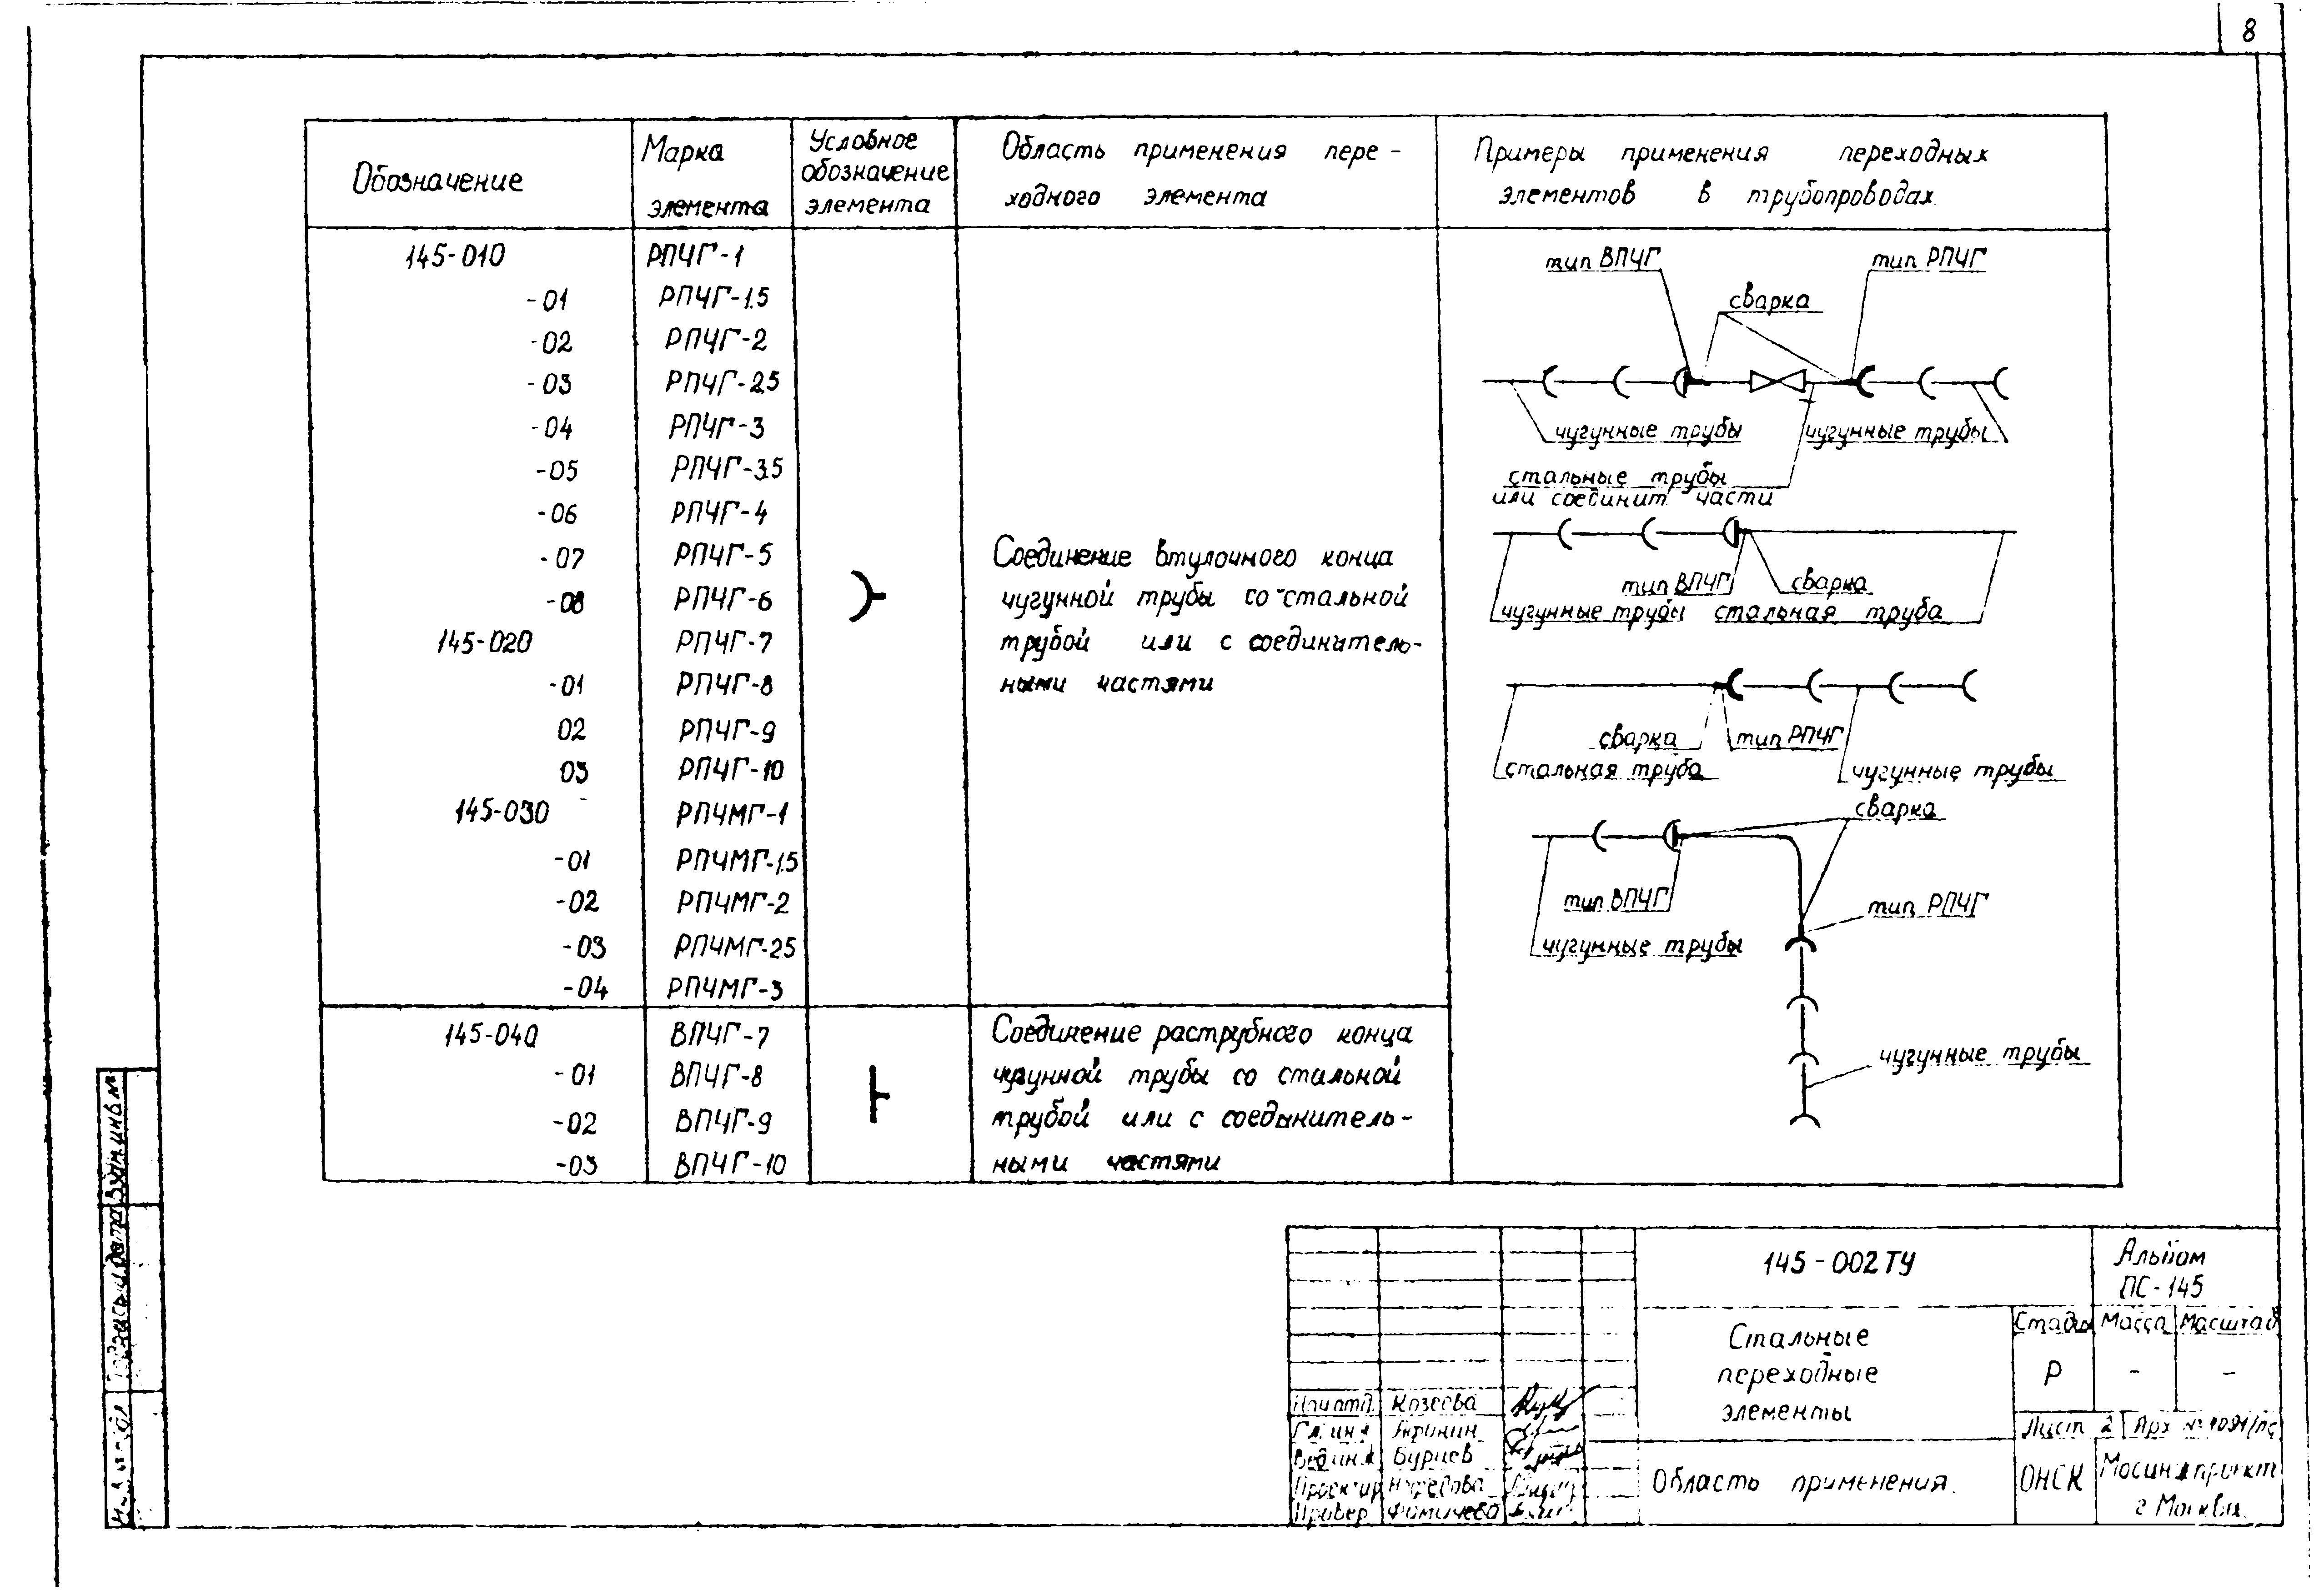 8
Обозначение
Марка
элемента
Условное
обозначение
элемента
Область применения пере-
ходного элемента
Примеры применения переходных
элементов в трубопроводах.
145-010 РПЧГ-1
-01 РПЧГ-1.5
-02 РПЧГ-2
-03 РПЧГ-2.5
-04 РПЧГ-3
-05 РПЧГ-3.5
-06 РПЧГ-4
-07 РПЧГ-5
-08 РПЧГ-6
145-020 РПЧГ-7
-01 РПЧГ-8
02 РПЧГ-9
03 РПЧГ-10
145-030 РПЧМГ-1
-01 РПЧМГ-1.5
-02 РПЧМГ-2
-03 РПЧМГ-2.5
-04 РПЧМГ-3
Соединение втулочного конца
чугунной трубы со стальной
трубой или с соединитель-
ными частями
145-040 ВПЧГ-7
-01 ВПЧГ-8
-02 ВПЧГ-9
-03 ВПЧГ-10
Соединение раструбного конца
чугунной трубы со стальной
трубой или с соединитель-
ными частями
тип ВПЧГ
тип РПЧГ
сварка
чугунные трубы
чугунные трубы
стальные трубы
или соединит. части
тип ВПЧГ
сварка
чугунные трубы
стальная труба
сварка
тип РПЧГ
стальная труба
чугунные трубы
сварка
тип ВПЧГ
тип РПЧГ
чугунные трубы
чугунные трубы
145-002ТУ
Альбом
ПС-145
Стальные
переходные
элементы
Стадия Масса Масштаб
Р - -
Лист 2
Арх №
Нач отд. Козеева
Гл. инж
Вед инж
Проектир
Провер Фомичева
Область применения.
ОНСК
Мосинжпроект
г Москва.
Взам инв №
Подпись и дата